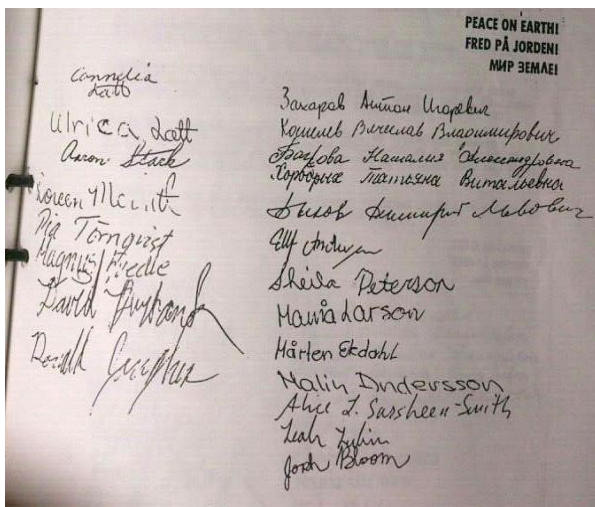 PEACE ON EARTH!
FRED PÅ JORDEN!
МИР ЗЕМЛЕ!
Cornelia
Latt
Ulrica Latt
Aaron Stark
Doreen
Pia Törnqvist
Magnus Fredle
David
Donald
Захаров Антон Игоревич
Кошелев Вячеслав Владимирович
Баткова Наталия Александровна
Хоробрых Татьяна Витальевна
Быков Димитрий Львович
Sheila Peterson
Maria Larson
Mårten Ekdahl
Malin Andersson
Alice L. Sarsheen-Smith
Leah
Josh Bloom